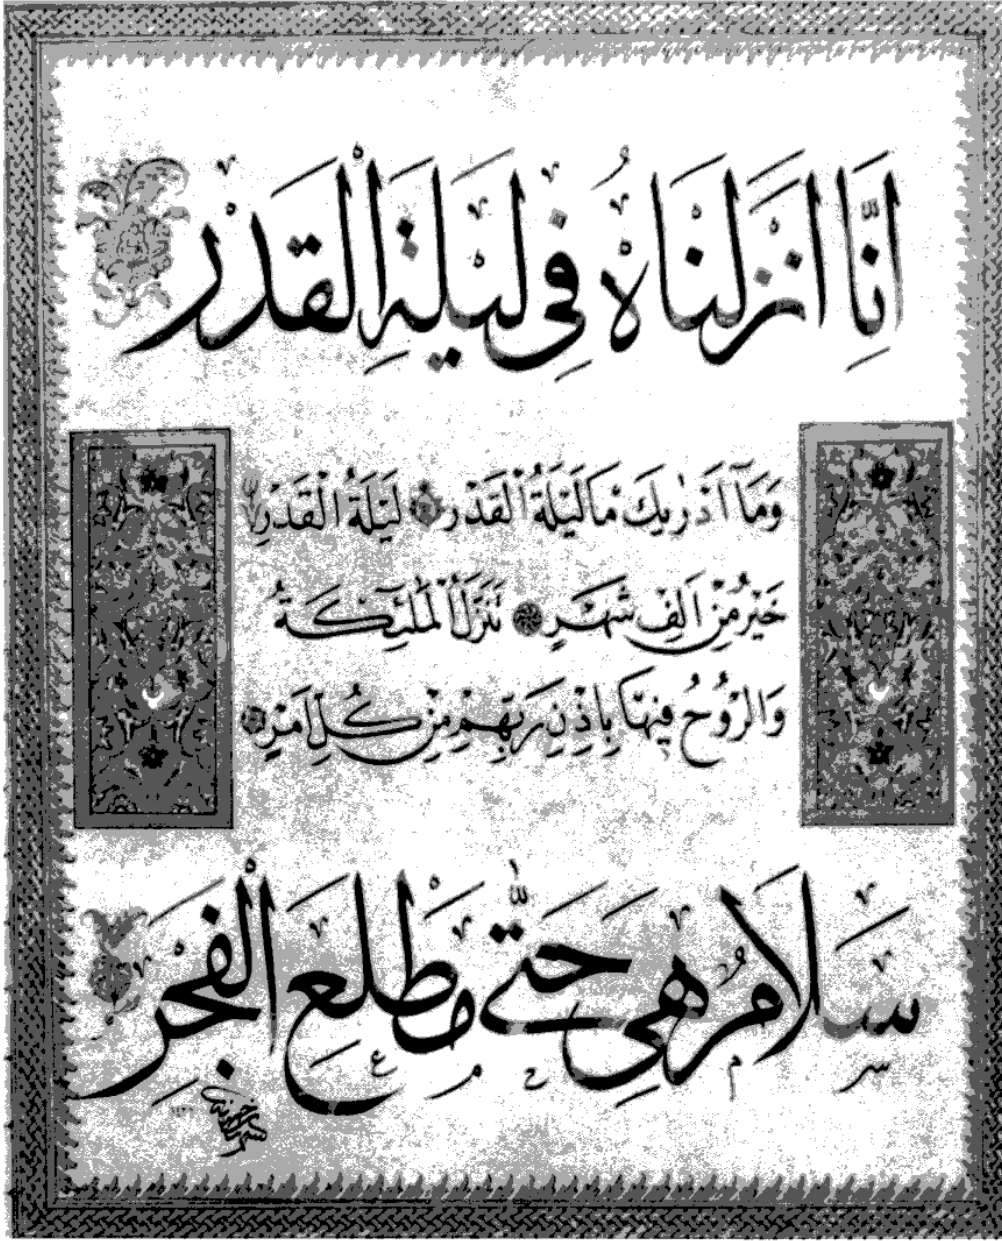 اِنَّا اَنْزَلْنَاهُ فِى لَيْلَةِ الْقَدْرِ
وَمَآ اَدْرٰيكَ مَا لَيْلَةُ الْقَدْرِ ۝ لَيْلَةُ الْقَدْرِ
خَيْرٌ مِنْ اَلْفِ شَهْرٍ ۝ تَنَزَّلُ الْمَلٰٓئِكَةُ
وَالرُّوحُ فِيهَا بِاِذْنِ رَبِّهِمْ مِنْ كُلِّ اَمْرٍ ۝
سَلَامٌ هِىَ حَتّٰى مَطْلَعِ الْفَجْرِ